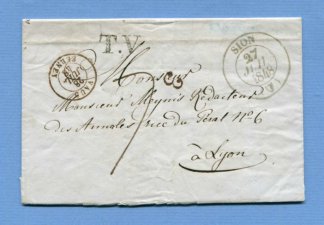 T.V.
SION
27
1848
Monsieur
Monsieur Meynis Rédacteur
des Annales rue du Perat N° 6
à Lyon